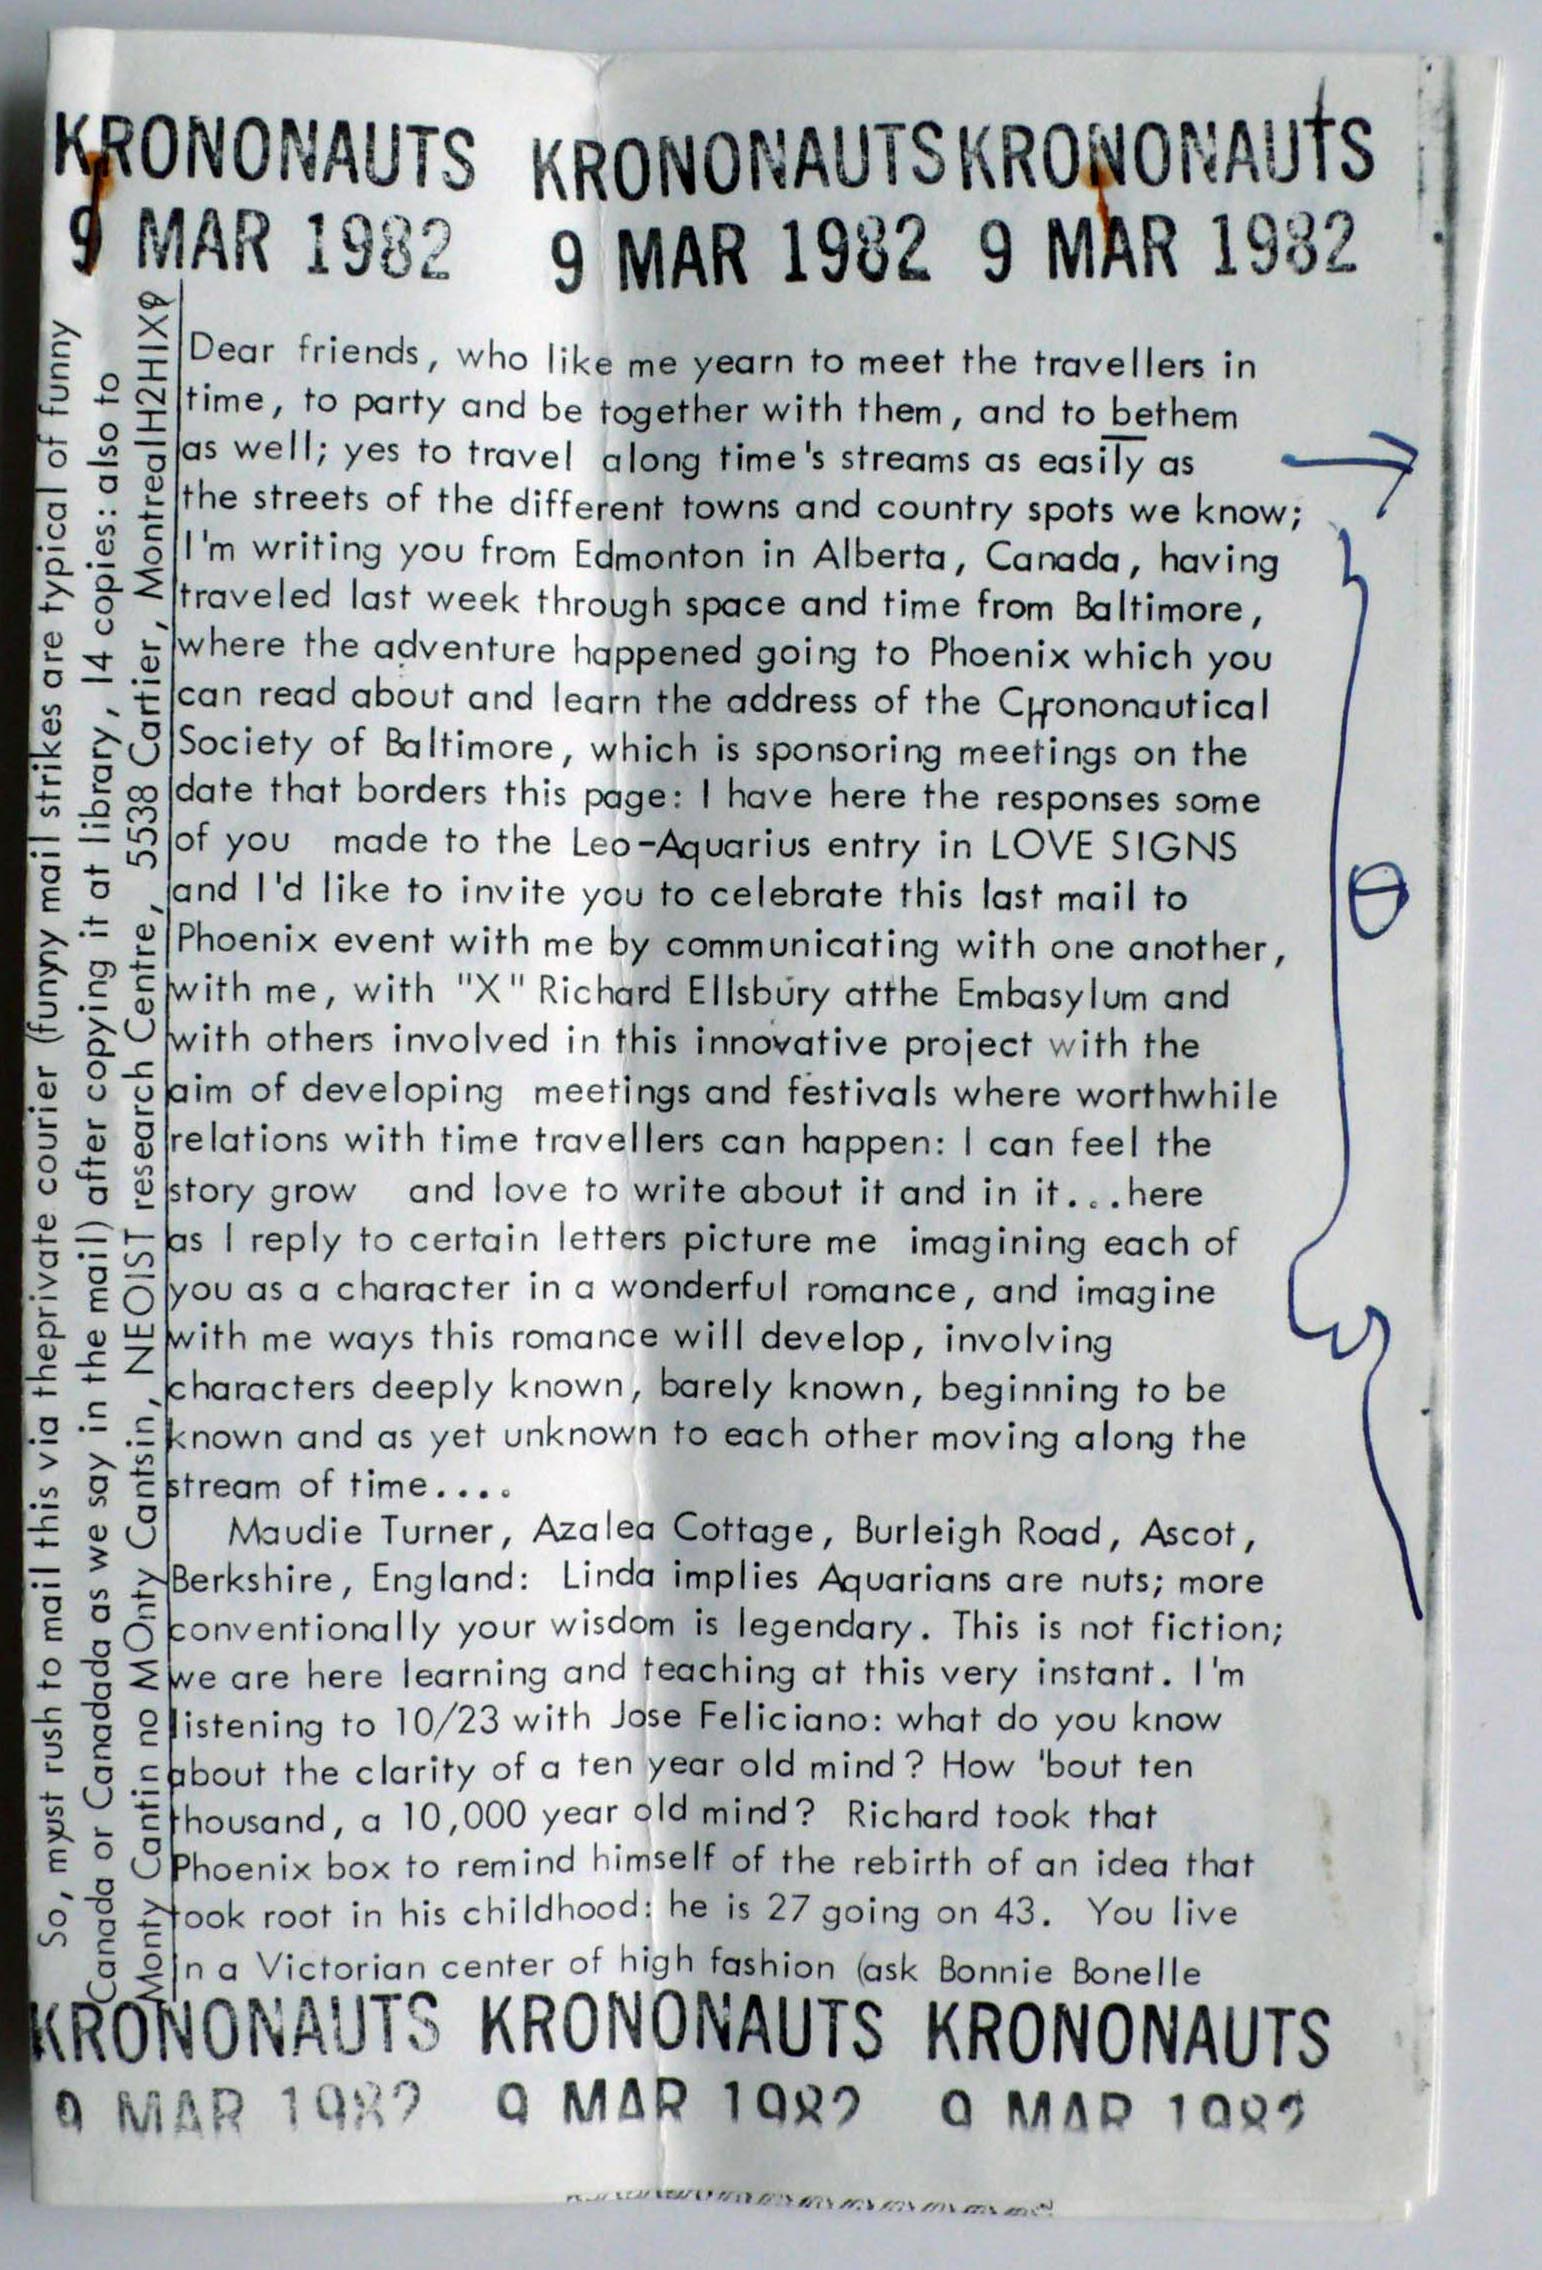 KRONONAUTS KRONONAUTS KRONONAUTS
9 MAR 1982 9 MAR 1982 9 MAR 1982
Dear friends, who like me yearn to meet the travellers in
time, to party and be together with them, and to bethem
as well; yes to travel along time's streams as easily as
the streets of the different towns and country spots we know;
I'm writing you from Edmonton in Alberta, Canada, having
traveled last week through space and time from Baltimore,
where the adventure happened going to Phoenix which you
can read about and learn the address of the Chrononautical
Society of Baltimore, which is sponsoring meetings on the
date that borders this page: I have here the responses some
of you made to the Leo-Aquarius entry in LOVE SIGNS
and I'd like to invite you to celebrate this last mail to
Phoenix event with me by communicating with one another,
with me, with "X" Richard Ellsbury atthe Embasylum and
with others involved in this innovative project with the
aim of developing meetings and festivals where worthwhile
relations with time travellers can happen: I can feel the
story grow and love to write about it and in it...here
as I reply to certain letters picture me imagining each of
you as a character in a wonderful romance, and imagine
with me ways this romance will develop, involving
characters deeply known, barely known, beginning to be
known and as yet unknown to each other moving along the
stream of time....
Maudie Turner, Azalea Cottage, Burleigh Road, Ascot,
Berkshire, England: Linda implies Aquarians are nuts; more
conventionally your wisdom is legendary. This is not fiction;
we are here learning and teaching at this very instant. I'm
listening to 10/23 with Jose Feliciano: what do you know
about the clarity of a ten year old mind? How 'bout ten
thousand, a 10,000 year old mind? Richard took that
Phoenix box to remind himself of the rebirth of an idea that
took root in his childhood: he is 27 going on 43. You live
in a Victorian center of high fashion (ask Bonnie Bonelle
KRONONAUTS KRONONAUTS KRONONAUTS
9 MAR 1982 9 MAR 1982 9 MAR 1982
So, must rush to mail this via theprivate courier (funyny mail strikes are typical of funny
Canada or Canadada as we say in the mail) after copying it at library, 14 copies: also to
Monty Cantin no MOnty Cantsin, NEOIST research Centre, 5538 Cartier, MontrealH2HIX9